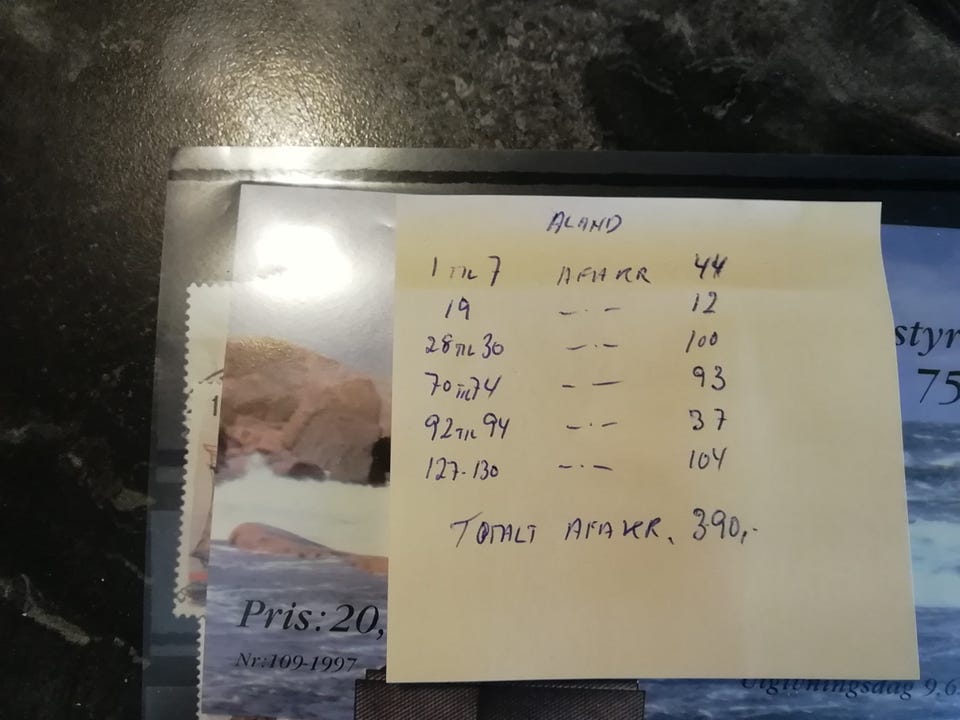 ALAND
1 TIL 7 AFA KR 44
19 —·— 12
28 TIL 30 —·— 100
70 TIL 74 — — 93
92 TIL 94 —·— 37
127-130 —·— 104
TOTALT AFA KR. 390,-
1
styr
75
Pris: 20,
Nr:109-1997
Utgivningsdag 9.6